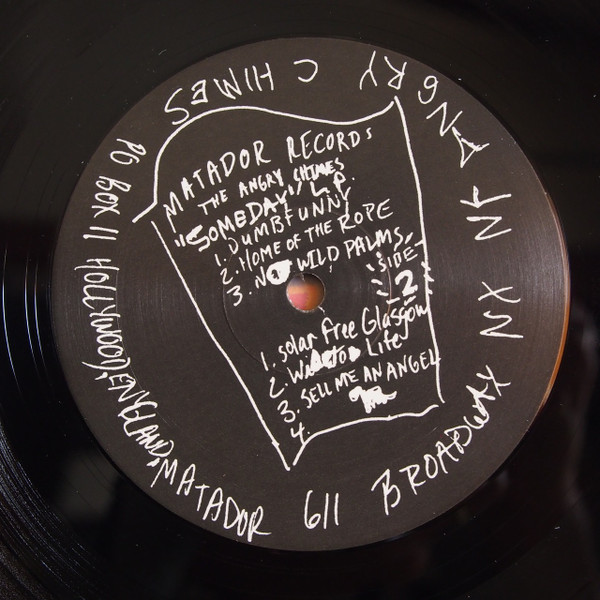 MATADOR RECORDS
THE ANGRY CHIMES
"SOMEDAY" L.P.
1. DUMBFUNNY
2. HOME OF THE ROPE
3. NO WILD PALMS
"SIDE
2"
1. solar free Glasgow
2. Life
3. SELL ME AN ANGEL
4.
ANGRY CHIMES
PO BOX 11 HOLLYWOOD, ENGLAND, MATADOR 611 BROADWAY NX NF